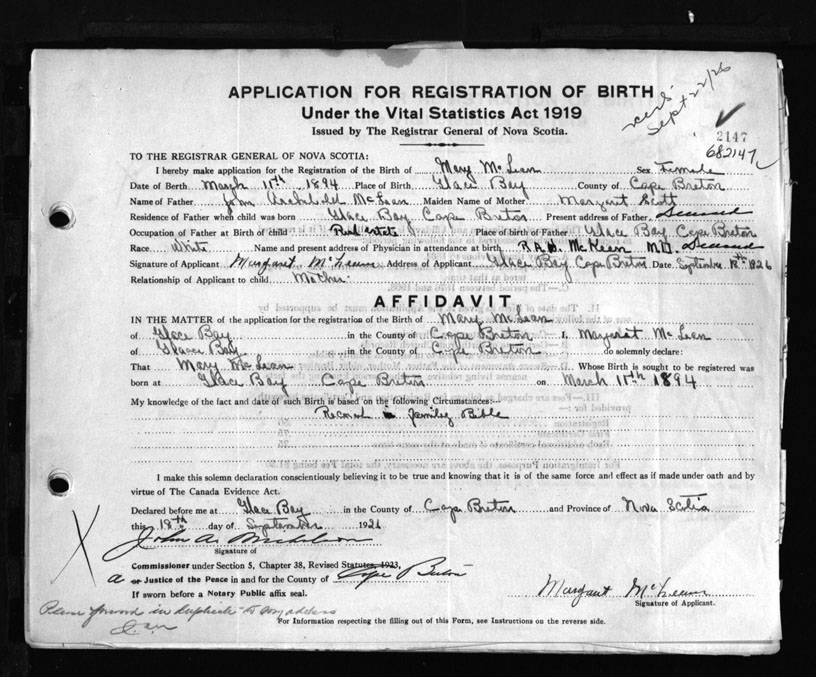 APPLICATION FOR REGISTRATION OF BIRTH
Under the Vital Statistics Act 1919
Issued by The Registrar General of Nova Scotia.
Sept 22/26
2147
682147
TO THE REGISTRAR GENERAL OF NOVA SCOTIA:
I hereby make application for the Registration of the Birth of Mary McLean Sex Female
Date of Birth March 11th 1894 Place of Birth Glace Bay County of Cape Breton
Name of Father John Archibald McLean Maiden Name of Mother Margaret Scott
Residence of Father when child was born Glace Bay Cape Breton Present address of Father Deceased
Occupation of Father at Birth of child Real estate Place of birth of Father Glace Bay Cape Breton
Race White Name and present address of Physician in attendance at birth McKeen M.D. Deceased
Signature of Applicant Margaret McLean Address of Applicant Glace Bay Cape Breton Date September 18th 1926
Relationship of Applicant to child Mother
AFFIDAVIT
IN THE MATTER of the application for the registration of the Birth of Mary McLean
of Glace Bay in the County of Cape Breton I, Margaret McLean
of Glace Bay in the County of Cape Breton do solemnly declare:
That Mary McLean Whose Birth is sought to be registered was
born at Glace Bay Cape Breton on March 11th 1894
My knowledge of the fact and date of such Birth is based on the following Circumstances:
Record in family Bible
I make this solemn declaration conscientiously believing it to be true and knowing that it is of the same force and effect as if made under oath and by
virtue of The Canada Evidence Act.
Declared before me at Glace Bay in the County of Cape Breton and Province of Nova Scotia
this 18th day of September 1926
John A.
Signature of
Commissioner under Section 5, Chapter 38, Revised Statutes, 1923,
a or Justice of the Peace in and for the County of Cape Breton
If sworn before a Notary Public affix seal.
Margaret McLean
Signature of Applicant.
Please forward in duplicate to my address
For Information respecting the filling out of this Form, see Instructions on the reverse side.